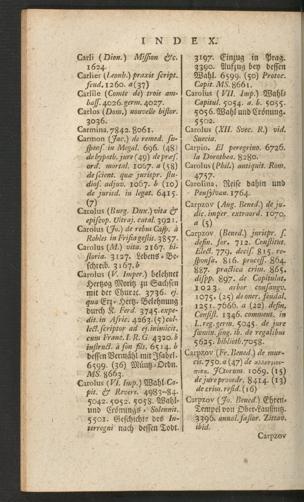 INDEX.
Carli (Dion.) Mission &c.
1624.
Carlier (Leonh.) praxis script.
feud. 1260. a (37)
Carlisle (Comte de) trois am-
bass. 4026. germ. 4027.
Carlos (Dom.) nouvelle histor.
3036.
Carmina. 7842. 8061.
Carmon (Jac.) de remed. su-
spens. in Mogal. 696. (48)
de hypoth. jure (49) de præs.
ord. mortal. 1067. a (58)
de scient. quæ jurispr. stu-
dios. adjuv. 1067. b (10)
de juried. in legat. 6415.
(7)
Carolus (Burg. Dux) vita &
episcop. Ultraj. catal. 3921.
Carolus (Jo.) de rebus Casp. à
Robles in Frisia gestis. 3857.
Carolus (M.) vita. 2167. hi-
storia. 3127. Lebens-Be-
schreib. 3167. b
Carolus (V. Imper.) belehnet
Hertzog Moritz zu Sachsen
mit der Churwe. 3736.
qua Ertz-Hertz. Belehnung
durch K. Ferd. 3745. expe-
dit. in Afric. 4263. (5) col-
lect. scriptor ad ej. inimicit.
cum Franc. I. R. G. 4320. b
instruct. à son fils. 6514. b
dessen Vermähl mit Isabel.
6599. (36) Müntz-Ordn.
MS. 8663.
Carolus (VI. Imp.) Wahl-Ca-
pit. & Revers. 4983-84.
5042. 5052. 5058. Wahl-
und Crönungs-Solennit.
5501. Geschichte des In-
terregni nach dessen Todt.
3197. Einzug in Prag.
3390. Aufzug bey dessen
Wahl. 6599. (50) Protoc.
Capit. MS. 8661.
Carolus (VII. Imp.) Wahl-
Capitul. 5054. a. b. 5055.
5056. Wahl und Crönung.
5502.
Carolus (XII. Suec. R.) vid.
Suecia.
Carpio. El peregrino. 6726.
la Dorothea. 8280.
Carolus (Phil.) antiquit. Rom.
4757.
Carolina. Reise dahin und
Pensylvan. 1764.
Carpzov (Aug. Bened.) de ju-
dic. imper. extraord. 1070.
a (5)
Carpzov (Bened.) jurispr. f.
defin. for. 712. Constitut.
Elect. 779. decis. 815. re-
sponsa. 816. process. 864.
887. practica crim. 865.
disp. 897. de Capitulat.
1023. arbor consangv.
1075. (25) de oner. feudal.
1251. 7666. a (22) defin.
Consist. 1346. comment. in
L. reg. germ. 5045. de jure
fœmin. sing. ib. de regalibus
5625. biblioth. 7058.
Carpzov (Fr. Bened.) de mur-
JCtorum. 1069. (15)
de jure proedr. 8414. (13)
de crim. resid. (16)
Carpzov (Jo. Bened.) Ehren-
Tempel von Ober-Lausnitz.
3396. annal. fastor. Zittav.
ibid.
Carpzov